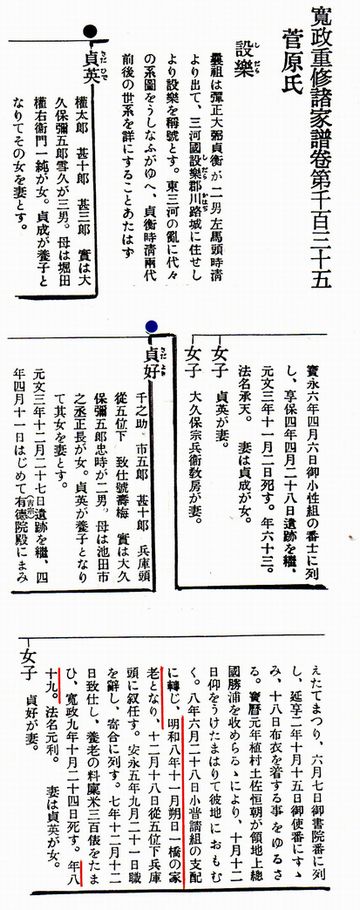 寛政重修諸家譜卷第千百三十五
菅原氏
設樂
しだら
曩祖は彈正大弼貞衡が二男左馬頭時淸
より出て、三河國設樂郡川路城に住せし
しだら
かはぢ
より設樂を稱號とす。東三河の亂に代々
の系圖をうしなふがゆへ、貞衡時淸兩代
前後の世系を詳にすることあたはず
貞英
さだひで
權太郎 甚十郎 甚三郎 實は大
久保彌五郎雪久が三男。母は堀田
權右衞門一純が女。貞成が養子と
なりてその女を妻とす。
寳永六年四月六日御小性組の番士に列
し、享保四年四月二十八日遺跡を繼、
元文三年十一月二日死す。年六十三。
法名承天。 妻は貞成が女。
女子
貞英が妻。
女子
大久保宗兵衞敎房が妻。
貞好
さだよし
千之助 市五郎 甚十郎 兵庫頭
從五位下 致仕號壽梅 實は大久
保彌五郎忠時が二男。母は池田市
之丞正長が女。貞英が養子となり
て其女を妻とす。
元文三年十二月二十七日遺跡を繼、四
年四月十一日はじめて有德院殿にまみ
(吉宗)
えたてまつり、六月七日御書院番に列
し、延享二年十月十五日御使番にすゝ
み、十八日布衣を着する事をゆるさ
る。寳曆元年植村土佐恒朝が領地上總
國勝浦を收めらるゝにより、十月十二
日仰をうけたまはりて彼地におもむ
く。八年六月二十八日小普請組の支配
に轉じ、明和八年十一月朔日一橋の家
老となり、十二月十八日從五位下兵庫
頭に叙任す。安永五年九月二十一日職
を辭し、寄合に列す。七年十二月十二
日致仕し、養老の料廩米三百俵をたま
ひ、寛政九年十月二十四日死す。年八
十九。法名元利。 妻は貞英が女。
女子
貞好が妻。